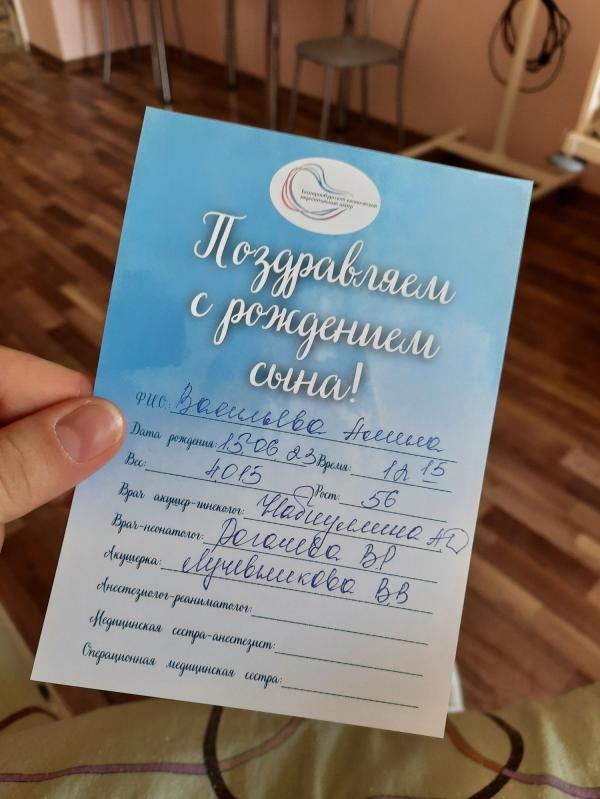 Екатеринбургский клинический
перинатальный центр
Поздравляем
с рождением
сына!
ФИО: Васильева Алина
Дата рождения: 15 06 23 Время: 12 15
Вес: 4015 Рост: 56
Врач акушер-гинеколог: Набиуллина АР
Врач-неонатолог: Рогалева ВР
Акушерка: ВВ
Анестезиолог-реаниматолог:
Медицинская сестра-анестезист:
Операционная медицинская сестра: